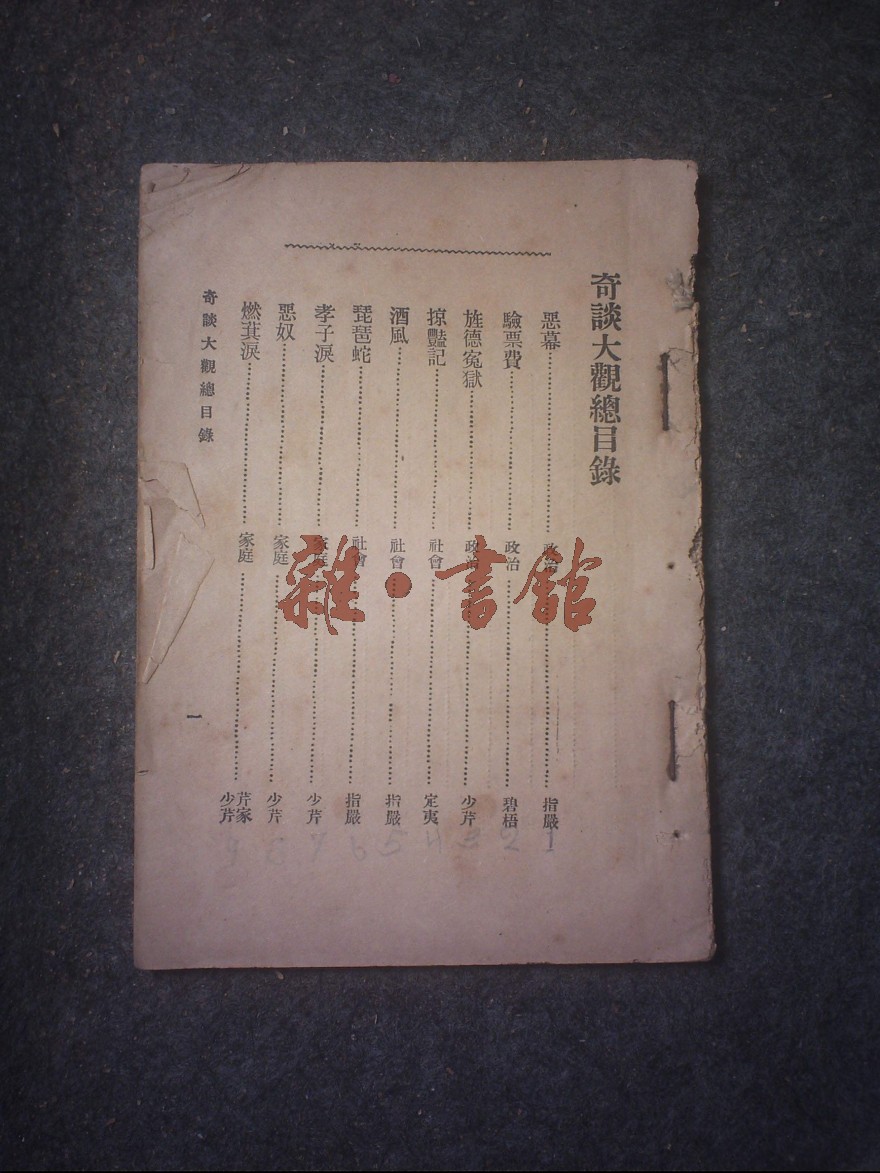 奇談大觀總目錄
惡幕…政治…指嚴
驗票費…政治…碧梧
旌德寃獄…政治…少芹
掠豔記…社會…定夷
酒風…社會…指嚴
琵琶蛇…社會…指嚴
孝子淚…家庭…少芹
惡奴…家庭…少芹
燃萁淚…家庭…芹家 少芹
奇談大觀總目錄
一
1 2 3 4 5 6 7 8 9
雜·書館